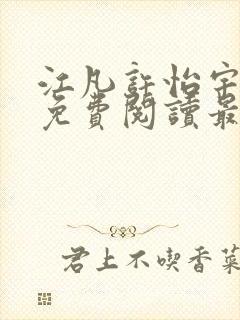 江凡許怡宁
免費閱讀最
君上不喫香菜